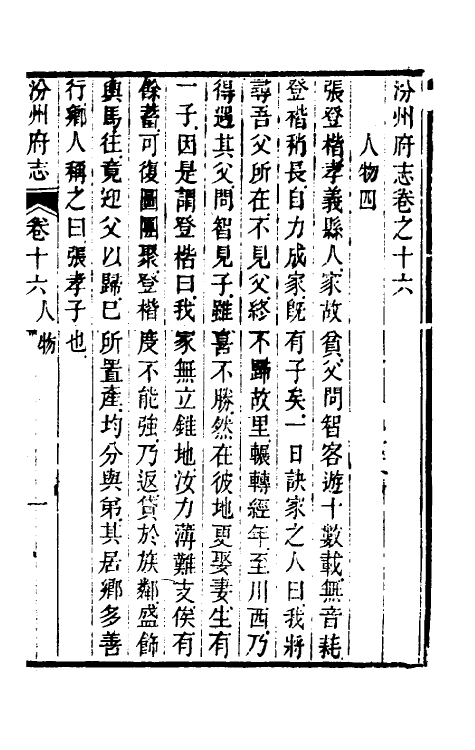 汾州府志卷之十六
人物四
張登楷孝義縣人家故貧父問智客遊十數載無音耗
登楷稍長自力成家旣有子矣一日訣家之人曰我將
尋吾父所在不見父終不歸故里輾轉經年至川西乃
得遇其父問智見子雖喜不勝然在彼地更娶妻生有
一子因是謂登楷曰我家無立錐地汝力薄難支俟有
餘蓄可復圖團聚登楷度不能強乃返貨於族鄰盛飾
輿馬往竟迎父以歸巳所置產均分與弟其居鄉多善
行鄉人稱之曰張孝子也
汾州府志 卷十六 人物 一